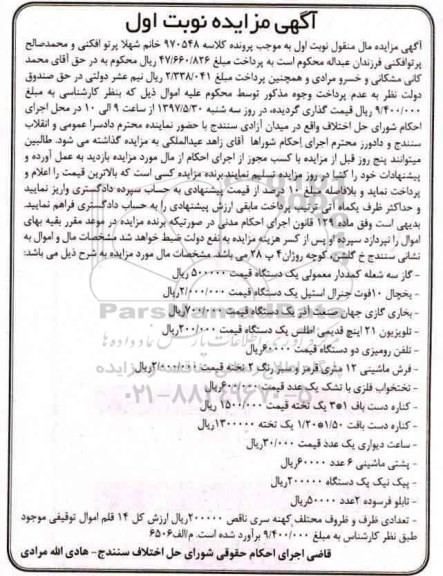 آگهی مزایده نوبت اول
آگهی مزایده مال منقول نوبت اول به موجب پرونده کلاسه ۹۷۰۵۴۸ خانم شهلا پرتو افکنی و محمدصالح
پرتوافکنی فرزندان عبداله محکوم است به پرداخت مبلغ ۴۷/۶۶۰/۸۲۶ ریال محکوم به در حق آقای محمد
کانی مشکانی و خسرو مرادی و همچنین پرداخت مبلغ ۲/۳۳۸/۰۴۱ ریال نیم عشر دولتی در حق صندوق
دولت نظر به عدم پرداخت وجوه مذکور توسط محکوم علیه اموال ذیل که بنظر کارشناسی به مبلغ
۹/۴۰۰/۰۰۰ ریال قیمت گذاری گردیده، در روز سه شنبه ۱۳۹۷/۵/۳۰ از ساعت ۹ الی ۱۰ در محل اجرای
احکام شورای حل اختلاف واقع در میدان آزادی سنندج با حضور نماینده محترم دادسرا عمومی و انقلاب
سنندج و دادورز محترم اجرای احکام شوراها آقای زاهد عبدالملکی به مزایده گذاشته می شود. طالبین
میتوانند پنج روز قبل از مزایده با کسب مجوز از اجرای احکام از مال مورد مزایده بازدید به عمل آورده و
پیشنهادات خود را کتبا در روز مزایده تسلیم نمایند. برنده مزایده کسی است که بالاترین قیمت را اعلام و
پرداخت نماید و بلافاصله مبلغ ۱۰ درصد از قیمت پیشنهادی به حساب سپرده دادگستری واریز نمایید
و حداکثر ظرف یکماه آتی ترتیب پرداخت مابقی ارزش پیشنهادی را به حساب دادگستری فراهم نمایید.
بدیهی است وفق ماده ۱۲۹ قانون اجرای احکام مدنی در صورتیکه برنده مزایده در موعد مقرر بقیه بهای
اموال را نپردازد سپرده او پس از کسر هزینه مزایده به نفع دولت ضبط خواهد شد مشخصات مال و اموال به
نشانی سنندج خ گلشن، کوچه روژان۴ پ ۲۸ می باشد. مشخصات مال مورد مزایده به شرح ذیل می باشد:
- گاز سه شعله کمددار معمولی یک دستگاه قیمت ۵۰۰۰۰۰ ریال
- یخچال ۱۰فوت جنرال استیل یک دستگاه قیمت ۲/۰۰۰/۰۰۰ریال
- بخاری گازی جهان صنعت آذر یک دستگاه قیمت ۷۰۰/۰۰۰ریال
- تلویزیون ۲۱ اینچ قدیمی اطلس یک دستگاه قیمت ۲۰۰/۰۰۰ریال
- تلفن رومیزی دو دستگاه قیمت ۶۰۰۰۰ریال
- فرش ماشینی ۱۲ متری قرمز و سبز رنگ ۲ تخته قیمت ۲/۰۰۰/۰۰۰ریال
- تختخواب فلزی با تشک یک عدد قیمت ۶۰۰/۰۰۰ریال
- کناره دست باف ۱*۳ یک تخته قیمت ۱/۵۰۰/۰۰۰ ریال
- کناره دست بافت ۱/۵۰*۱/۲۰ یک تخته ۱۳۰۰۰۰۰ریال
- ساعت دیواری یک عدد قیمت ۳۰/۰۰۰ریال
- پشتی ماشینی ۶ عدد ۶۰۰۰۰ریال
- پیک نیک یک دستگاه ۲۰۰۰۰۰ریال
- تابلو فرسوده ۲عدد ۵۰۰۰۰ریال
- تعدادی ظرف و ظروف مختلف کهنه سری ناقص ۲۰۰۰۰۰ریال ارزش کل ۱۴ قلم اموال توقیفی موجود
طبق نظر کارشناس به مبلغ ۹/۴۰۰/۰۰۰ برآورد شده است. م/الف۶۵۰۶
قاضی اجرای احکام حقوقی شورای حل اختلاف سنندج- هادی الله مرادی
ParsNamadData
۰۲۱-۸۸۳۴۹۶۷۰-۵